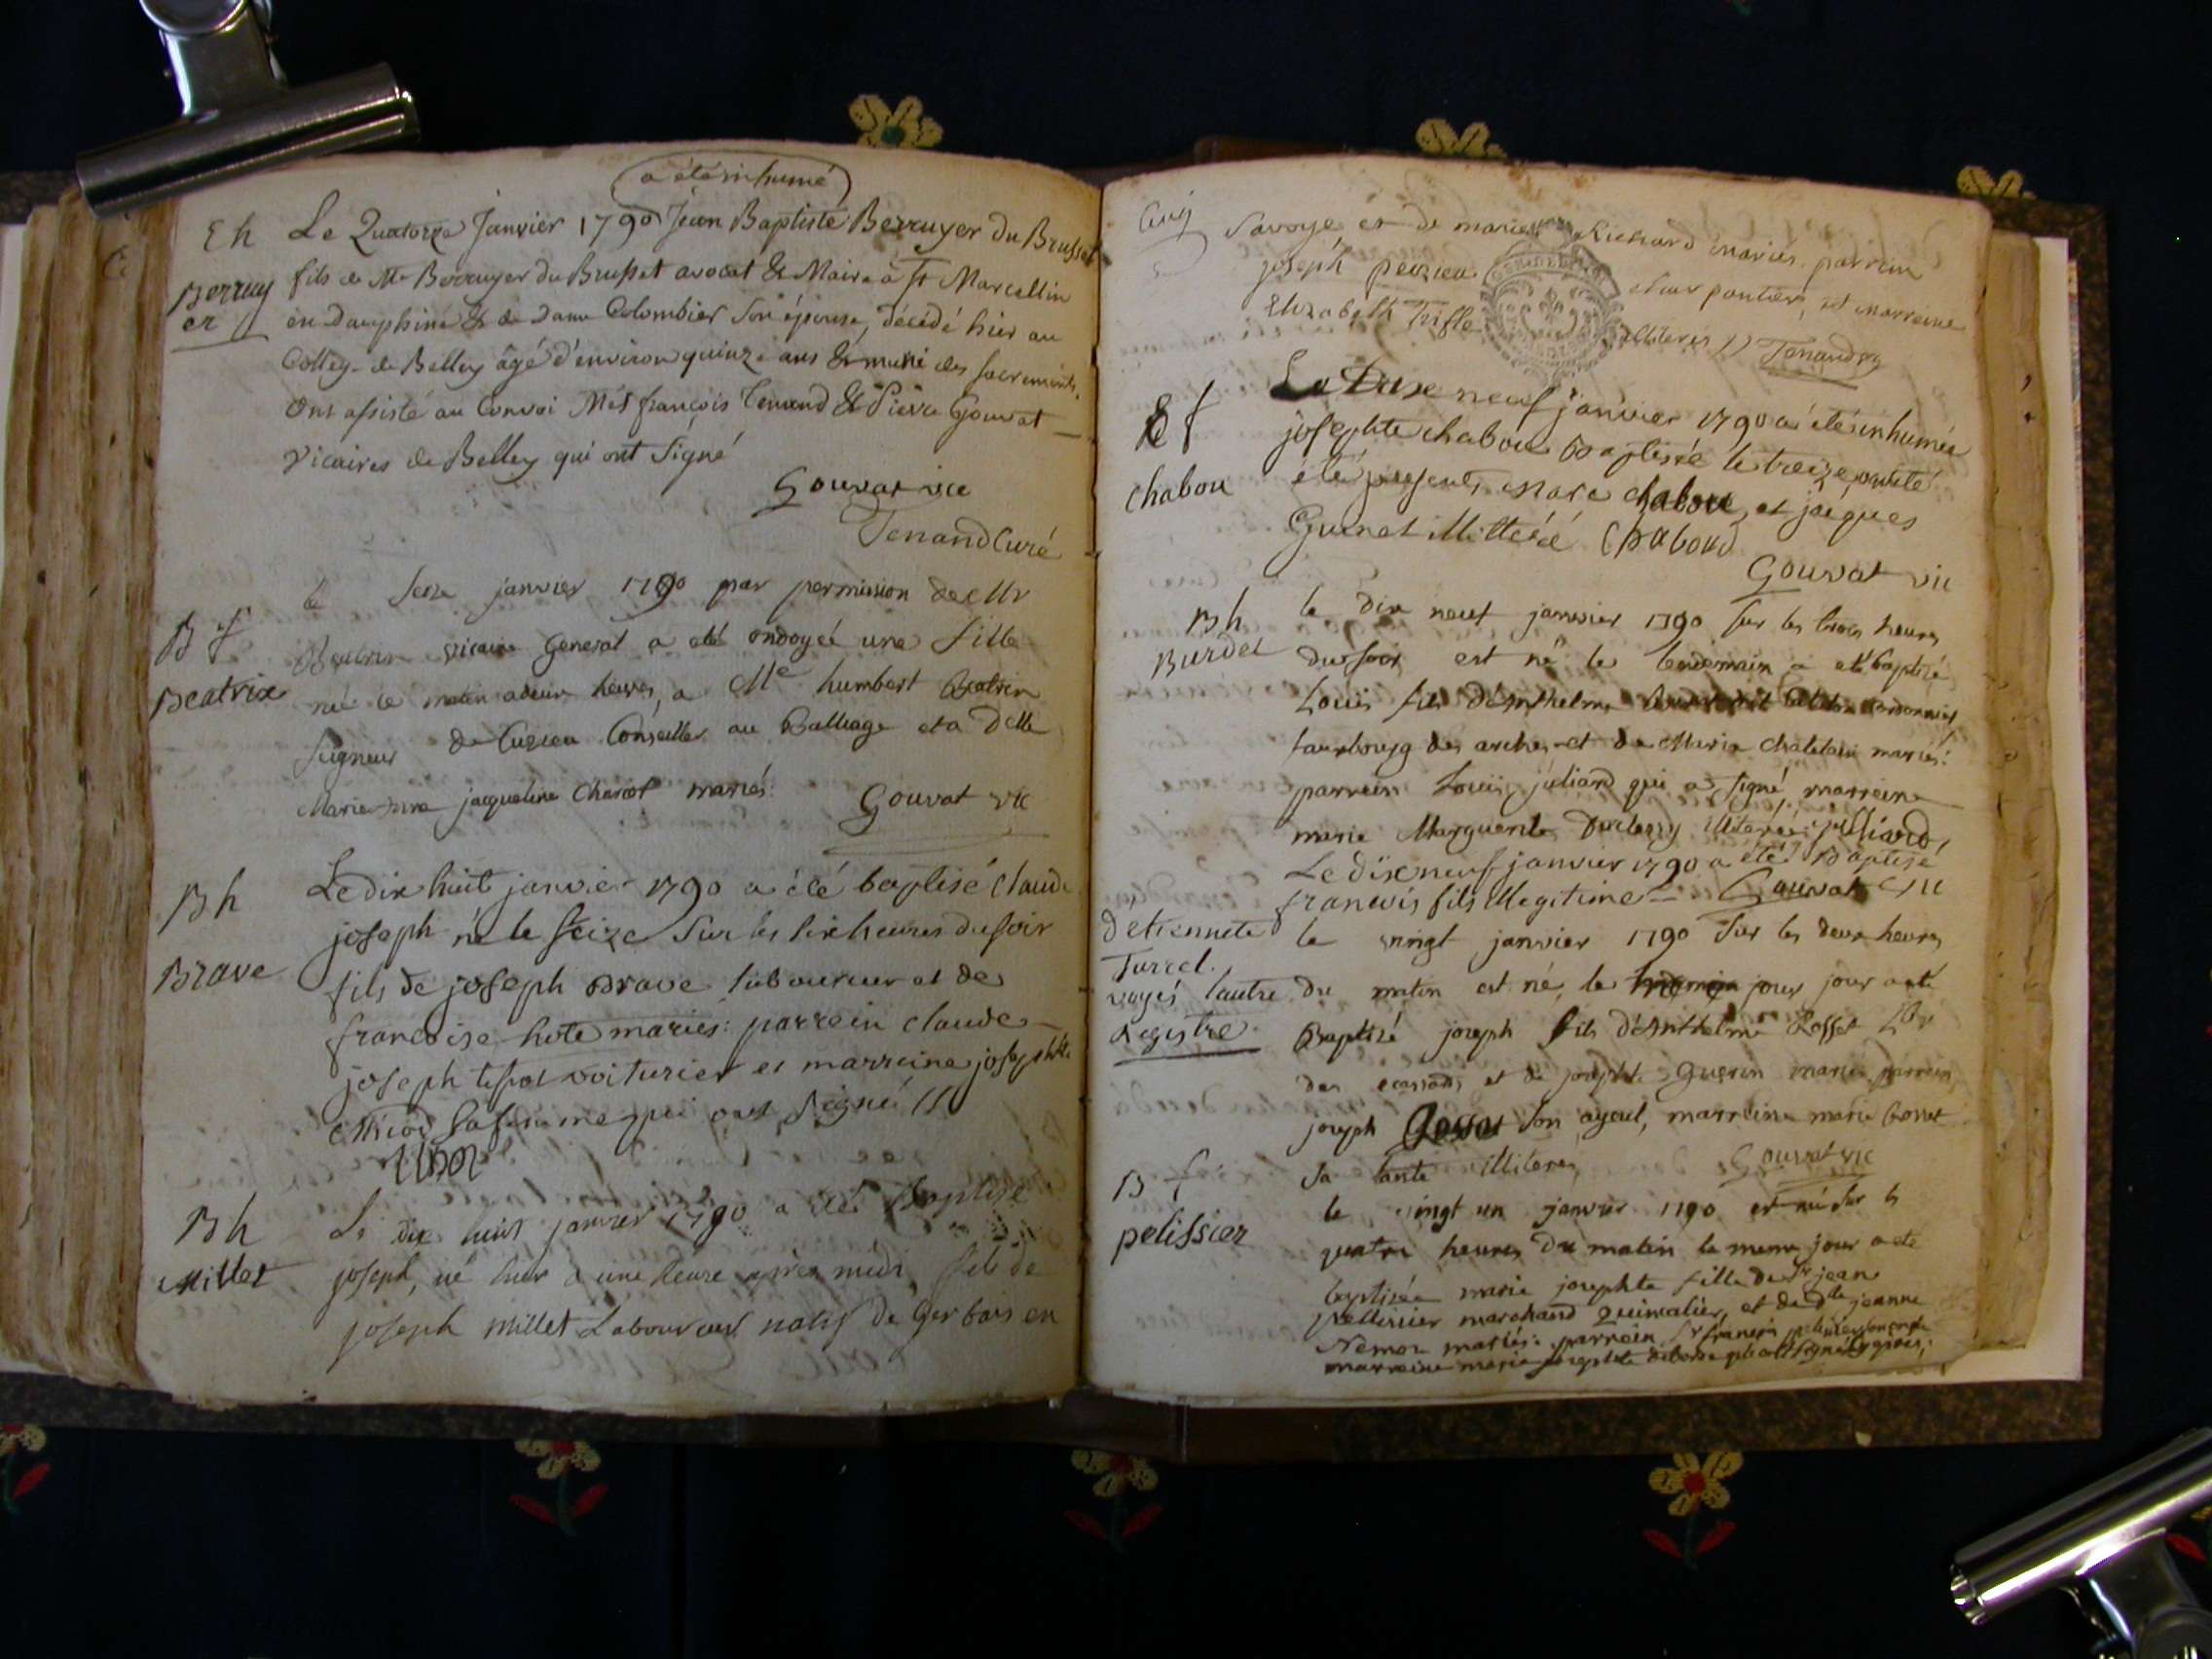 a été inhumé
Eh Le Quatorze Janvier 1790 Jean Baptiste Berruyer du Brusset
Berruy er fils de Mr Berruyer du Brusset avocat & Maire à St Marcellin
en Dauphiné & de Dame Colombier son épouse, décédé hier au
College de Belley âgé d'environ quinze ans & muni des sacrements.
Ont assisté au Convoi Mrs françois Tenand & Pierre Gouvat
Vicaires de Belley qui ont signé
Gouvat vic
Tenand Curé
Bf le seize janvier 1790 par permission de Mr
vicaire General a eté ondoyée une fille
Beatrix née le matin a deux heures, a Me humbert Beatrix
seigneur de Cuzieu Conseiller au Balliage et a Delle
Marie jacqueline mariés. Gouvat vic
Bh Le dix huit janvier 1790 a été baptisé Claude
joseph né le seize sur les six heures du soir
Brave fils de joseph Brave laboureur et de
francoise hote mariés: parrein claude
joseph voiturier et marreine josephte
Thiod sa femme qui ont signé
Bh Le dix huit janvier 1790 a été Baptisé
Millet joseph, né hier a une heure après midi, fils de
joseph Millet Laboureur natif de Gerbais en
Savoye et de marie Richard mariés. parrein
joseph peuzieu charpentier, et marreine
Elizabeth Trifle illiterés Tenand
Ef Le Dix neuf janvier 1790 a été inhumée
josephte chabou Baptisée le treize, ont été
chabou été presents marc chabou, et jacques
Guinet illitéré Chaboud
Gouvat vic
Bh le dix neuf janvier 1790 sur les trois heures
Burdet du soir est né le lendemain a eté baptisé
Louis fils d'Anthelme cordonnier
fauxbourg des arches et de Marie Chatelain mariés:
parrein Louis juliard qui a signé, marreine
marie Marguerite illiterée julliard,
Le dix neuf janvier 1790 a été Baptisé
francois fils illegitime Gouvat vic
d'etiennete Turrel. voyés l'autre Registre
le vingt janvier 1790 sur les deux heures
du matin est né, le jour jour a eté
Baptisé joseph fils d'Anthelme Rosset
des et de josephte Guerin mariés parrein
joseph son ayeul, marreine marie bonet
sa tante illiteres Gouvat vic
Bf le vingt un janvier 1790 est née sur les
pelissier quatre heures du matin le meme jour a eté
baptisée marie josephte fille de Sr jean
pellissier marchand quincalier, et de Dlle jeanne
Nemoz mariés: parrein Sr françois
marreine marie josephte